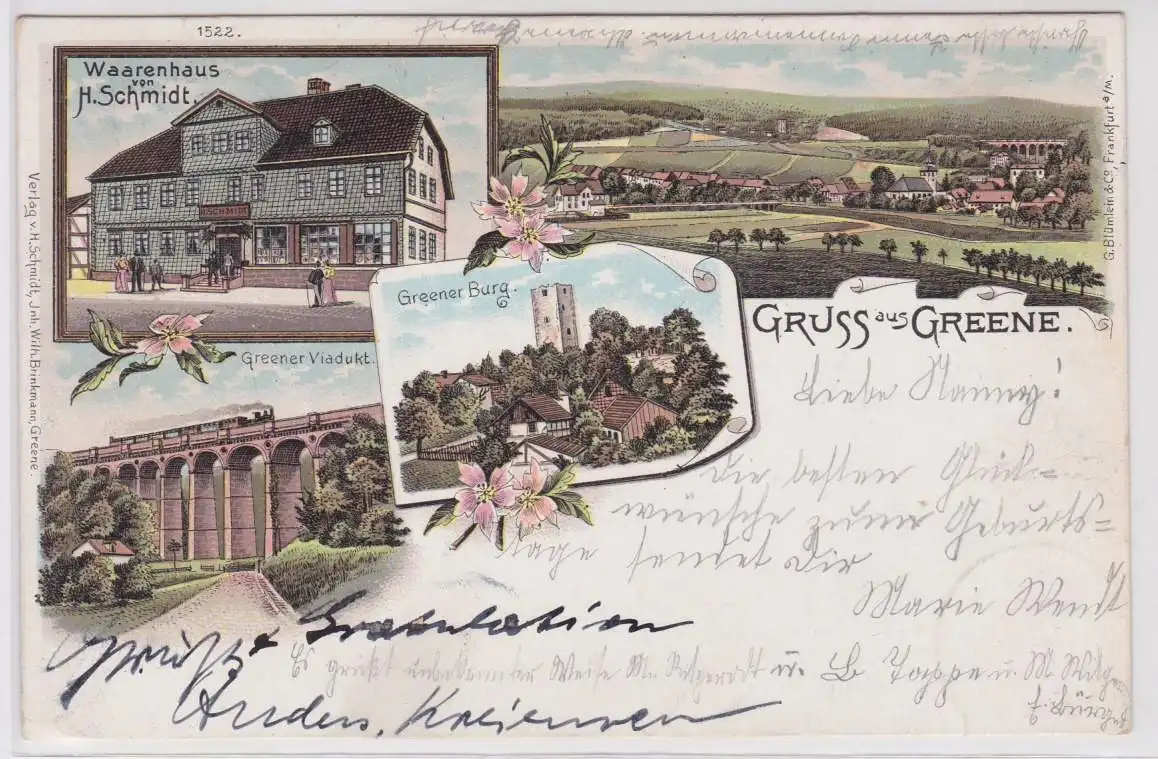 1522.
Waarenhaus
von
H. Schmidt.
H. SCHMIDT
Greener Burg.
Greener Viadukt.
GRUSS aus GREENE.
Verlag v. H. Schmidt, Jnh. Wilh. Brinkmann, Greene.
G. Blümlein & Co., Frankfurt a/M.
Liebe Nanny!
Die besten Glück-
wünsche zum Geburts-
tage sendet Dir
Marie Wendt
Gratulation
Es grüßt unbekannter Weise M. u. B Toppe u. M
Kreiensen